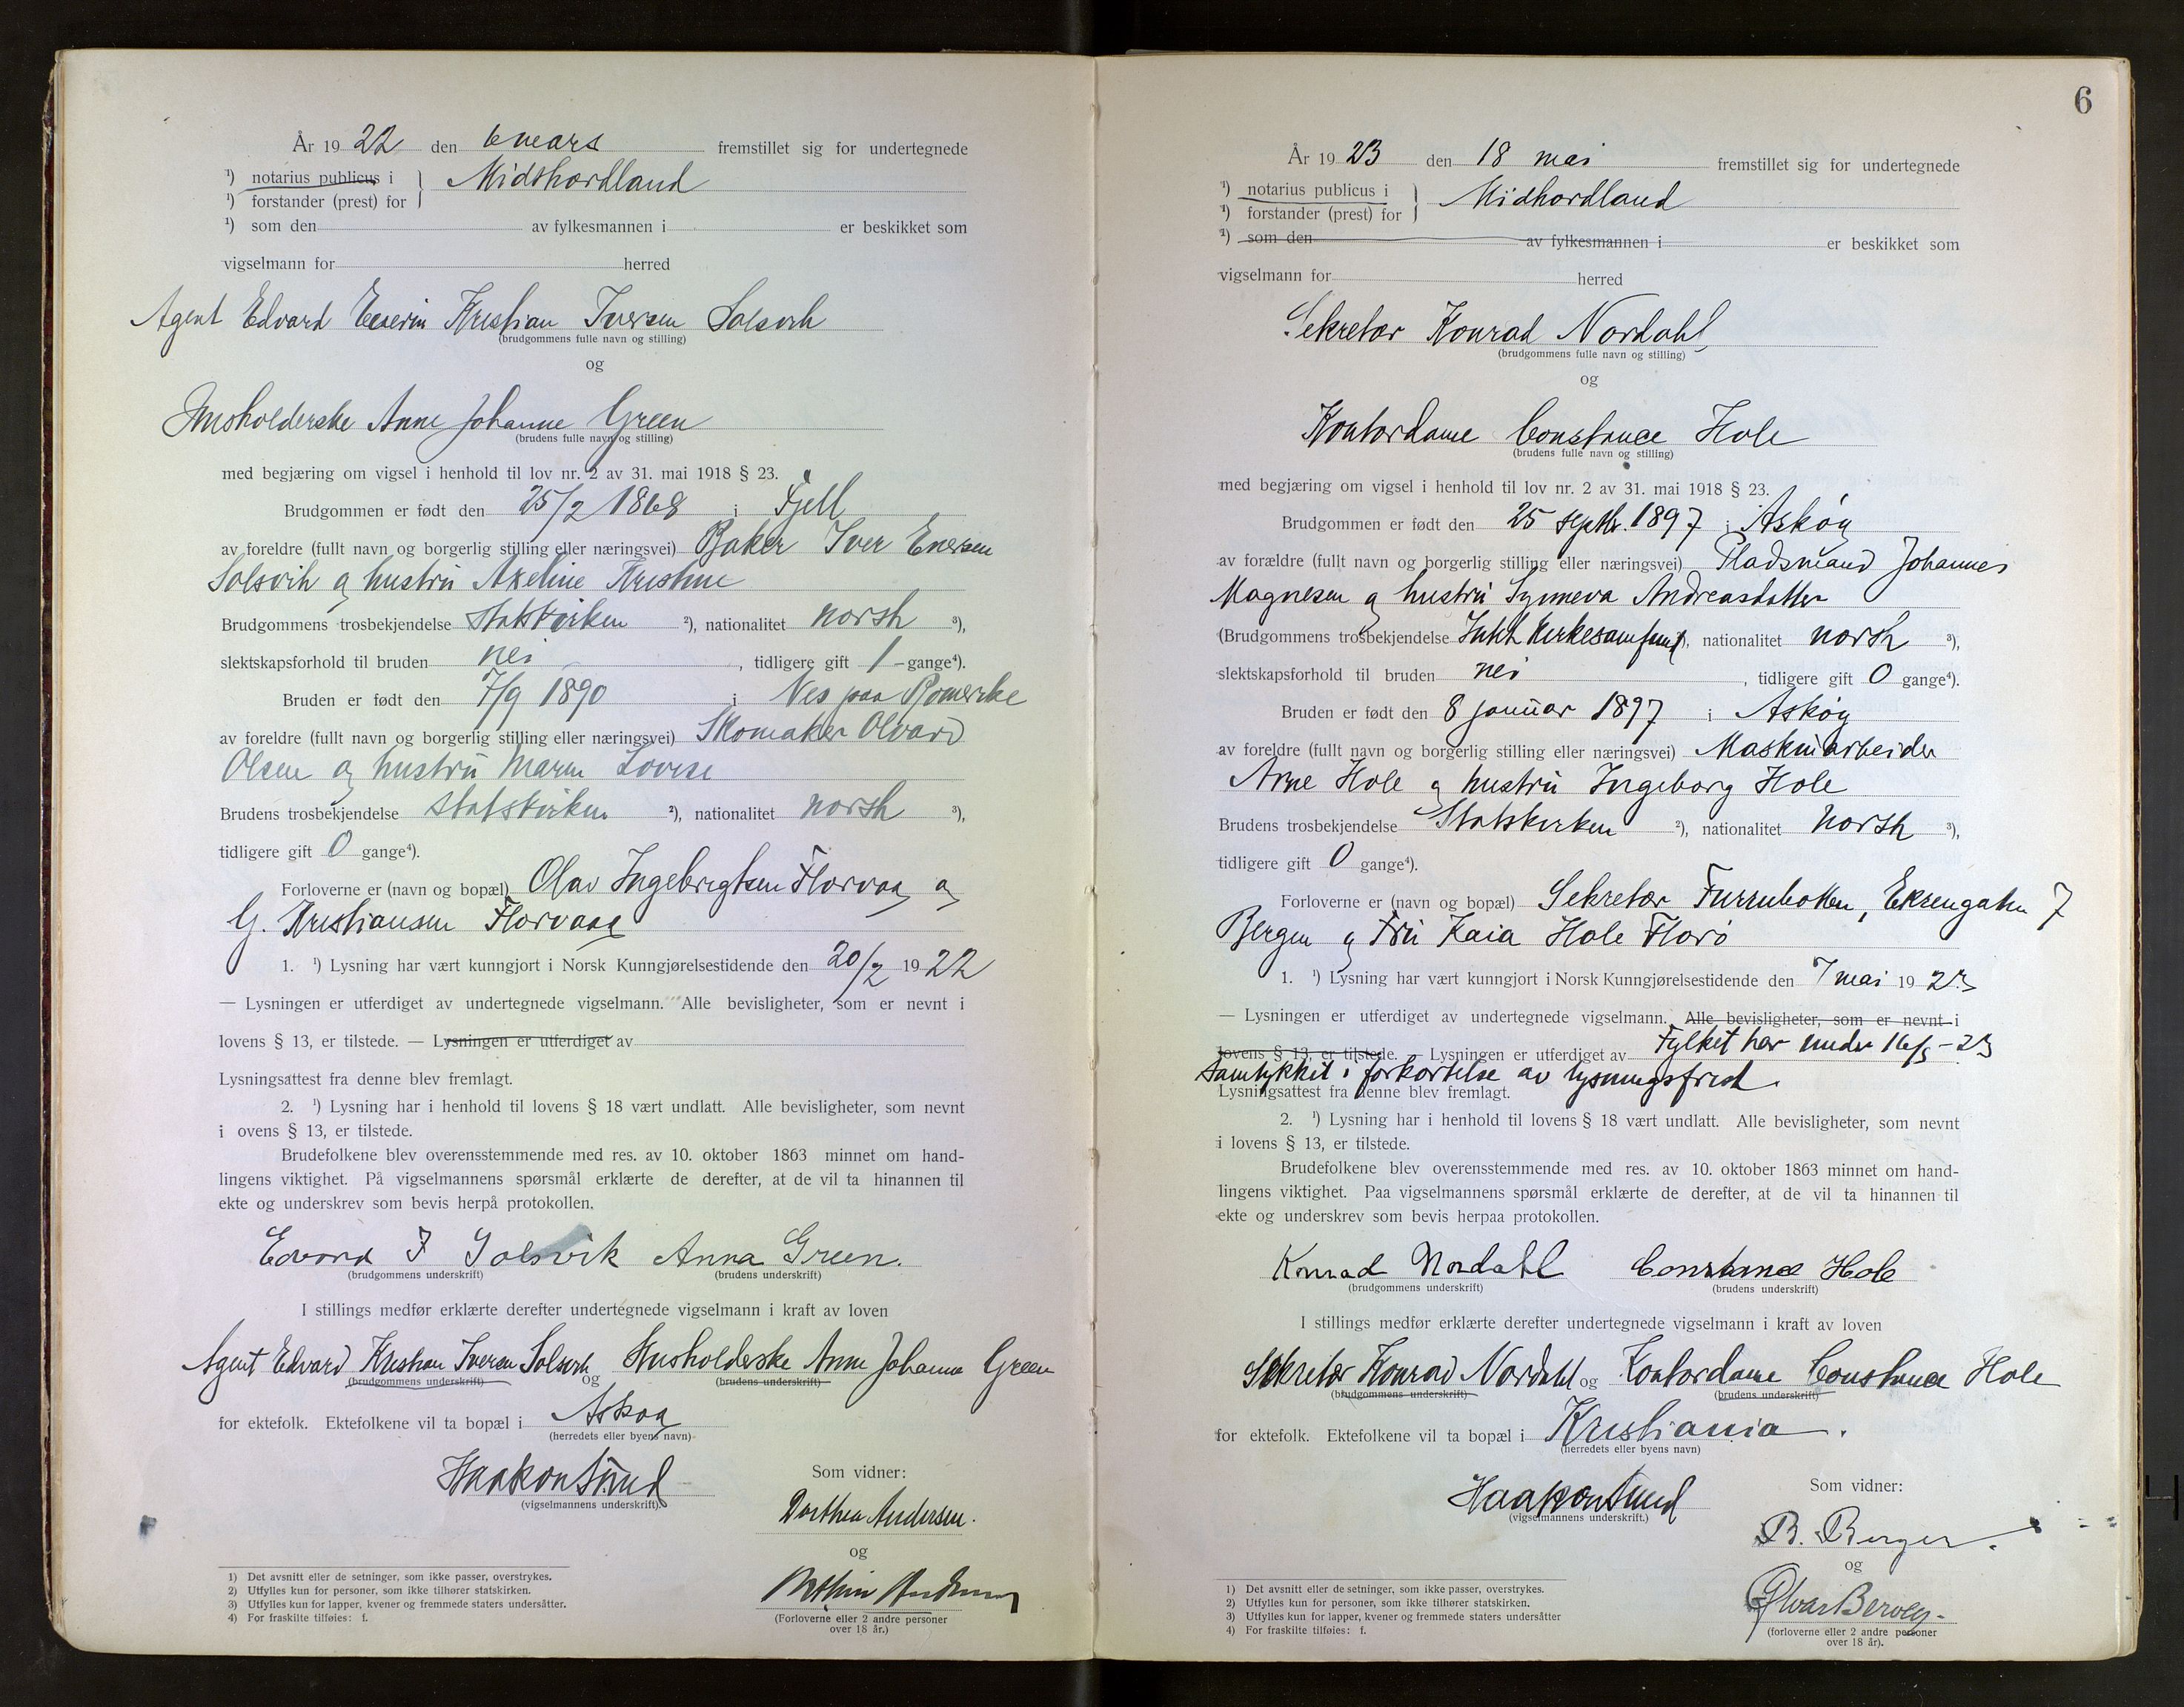 År 1922 den 6 mars fremstillet sig for undertegnede
¹) notarius publicus i
Midthordland
¹) forstander (prest) for
¹) som den av fylkesmannen i er beskikket som
vigselmann for herred
Agent Edvard Kristian Iversen Solsvik
(brudgommens fulle navn og stilling)
og
Husholderske Anne Johanne Green
(brudens fulle navn og stilling)
med begjæring om vigsel i henhold til lov nr. 2 av 31. mai 1918 § 23.
Brudgommen er født den 25/2 1868 i Fjell
av foreldre (fullt navn og borgerlig stilling eller næringsvei) Baker Iver Enersen
Solsvik og hustru Axeline Kristine
Brudgommens trosbekjendelse statskirken ²), nationalitet norsk ³),
slektskapsforhold til bruden nei , tidligere gift 1 - gange⁴).
Bruden er født den 7/9 1890 i Nes paa Romerike
av foreldre (fullt navn og borgerlig stilling eller næringsvei) Skomaker Olvard
Olsen og hustru Maren Lovise
Brudens trosbekjendelse statskirken ²), nationalitet norsk ³),
tidligere gift 0 gange⁴).
Forloverne er (navn og bopæl) Olav Ingebrigtsen Florvaag og
G. Kristiansen Florvaag
1. ¹) Lysning har vært kunngjort i Norsk Kunngjørelsestidende den 20/2 1922
— Lysningen er utferdiget av undertegnede vigselmann. Alle bevisligheter, som er nevnt i
lovens § 13, er tilstede. — Lysningen er utferdiget av
Lysningsattest fra denne blev fremlagt.
2. ¹) Lysning har i henhold til lovens § 18 vært undlatt. Alle bevisligheter, som nevnt
i ovens § 13, er tilstede.
Brudefolkene blev overensstemmende med res. av 10. oktober 1863 minnet om hand-
lingens viktighet. På vigselmannens spørsmål erklærte de derefter, at de vil ta hinannen til
ekte og underskrev som bevis herpå protokollen.
Edvard I Solsvik Anna Green.
(brudgommens underskrift) (brudens underskrift)
I stillings medfør erklærte derefter undertegnede vigselmann i kraft av loven
Agent Edvard Kristian Iversen Solsvik og Husholderske Anne Johanne Green
(brudgommens underskrift) (brudens underskrift)
for ektefolk. Ektefolkene vil ta bopæl i Askøy
(herredets eller byens navn)
Haakon Sund
(vigselmannens underskrift).
Som vidner:
Dorthea Andersen.
og
(Forloverne eller 2 andre personer
over 18 år.)
1) Det avsnitt eller de setninger, som ikke passer, overstrykes.
2) Utfylles kun for personer, som ikke tilhører statskirken.
3) Utfylles kun for lapper, kvener og fremmede staters undersåtter.
4) For fraskilte tilføies: f.
6
År 1923 den 18 mai fremstillet sig for undertegnede
¹) notarius publicus i
Midhordland
¹) forstander (prest) for
²) som den av fylkesmannen i er beskikket som
vigselmann for herred
Sekretær Konrad Nordahl
(brudgommens fulle navn og stilling)
og
Kontordame Constance Hole
(brudens fulle navn og stilling)
med begjæring om vigsel i henhold til lov nr. 2 av 31. mai 1918 § 23.
Brudgommen er født den 25 septbr. 1897 i Askøy
av forældre (fullt navn og borgerlig stilling eller næringsvei) Pladsmand Johannes
Magnesen og hustru Synneva Andreasdatter
(Brudgommens trosbekjendelse Intet Kirkesamfund ²), nationalitet norsk ³),
slektskapsforhold til bruden nei , tidligere gift 0 gange⁴).
Bruden er født den 8 januar 1897 i Askøy
av foreldre (fullt navn og borgerlig stilling eller næringsvei) Maskinarbeider
Arne Hole og hustru Ingeborg Hole
Brudens trosbekjendelse Statskirken ²), nationalitet norsk ³),
tidligere gift 0 gange⁴).
Forloverne er (navn og bopæl) Sekretær Furubotten, Ekrengaten 7
Bergen og Fru Kaia Hole Florø
1. ¹) Lysning har vært kunngjort i Norsk Kunngjørelsestidende den 7 mai 1923
— Lysningen er utferdiget av undertegnede vigselmann. Alle bevisligheter, som er nevnt i
lovens § 13, er tilstede. — Lysningen er utferdiget av Fylket har under 16/5-23
samtykket i forkortelse av lysningsfrist.
Lysningsattest fra denne blev fremlagt.
2. ¹) Lysning har i henhold til lovens § 18 vært undlatt. Alle bevisligheter, som nevnt
i lovens § 13, er tilstede.
Brudefolkene blev overensstemmende med res. av 10. oktober 1863 minnet om hand-
lingens viktighet. Paa vigselmannens spørsmål erklærte de derefter, at de vil ta hinannen til
ekte og underskrev som bevis herpaa protokollen.
Konrad Nordahl Constance Hole
(brudgommens underskrift) (brudens underskrift)
I stillings medfør erklærte derefter undertegnede vigselmann i kraft av loven
Sekretær Konrad Nordahl og Kontordame Constance Hole
(brudgommens underskrift) (brudens underskrift)
for ektefolk. Ektefolkene vil ta bopæl i Kristiania.
(herredets eller byens navn)
Haakon Sund
(vigselmannens underskrift.)
Som vidner:
B. Berger.
og
(forloverne eller 2 andre personer
over 18 år).
1) Det avsnitt eller de setninger, som ikke passer, overstrykes.
2) Utfylles kun for personer, som ikke tilhører statskirken.
3) Utfylles kun for lapper, kvener og fremmede staters undersåtter
4) For fraskilte tilføies: f.